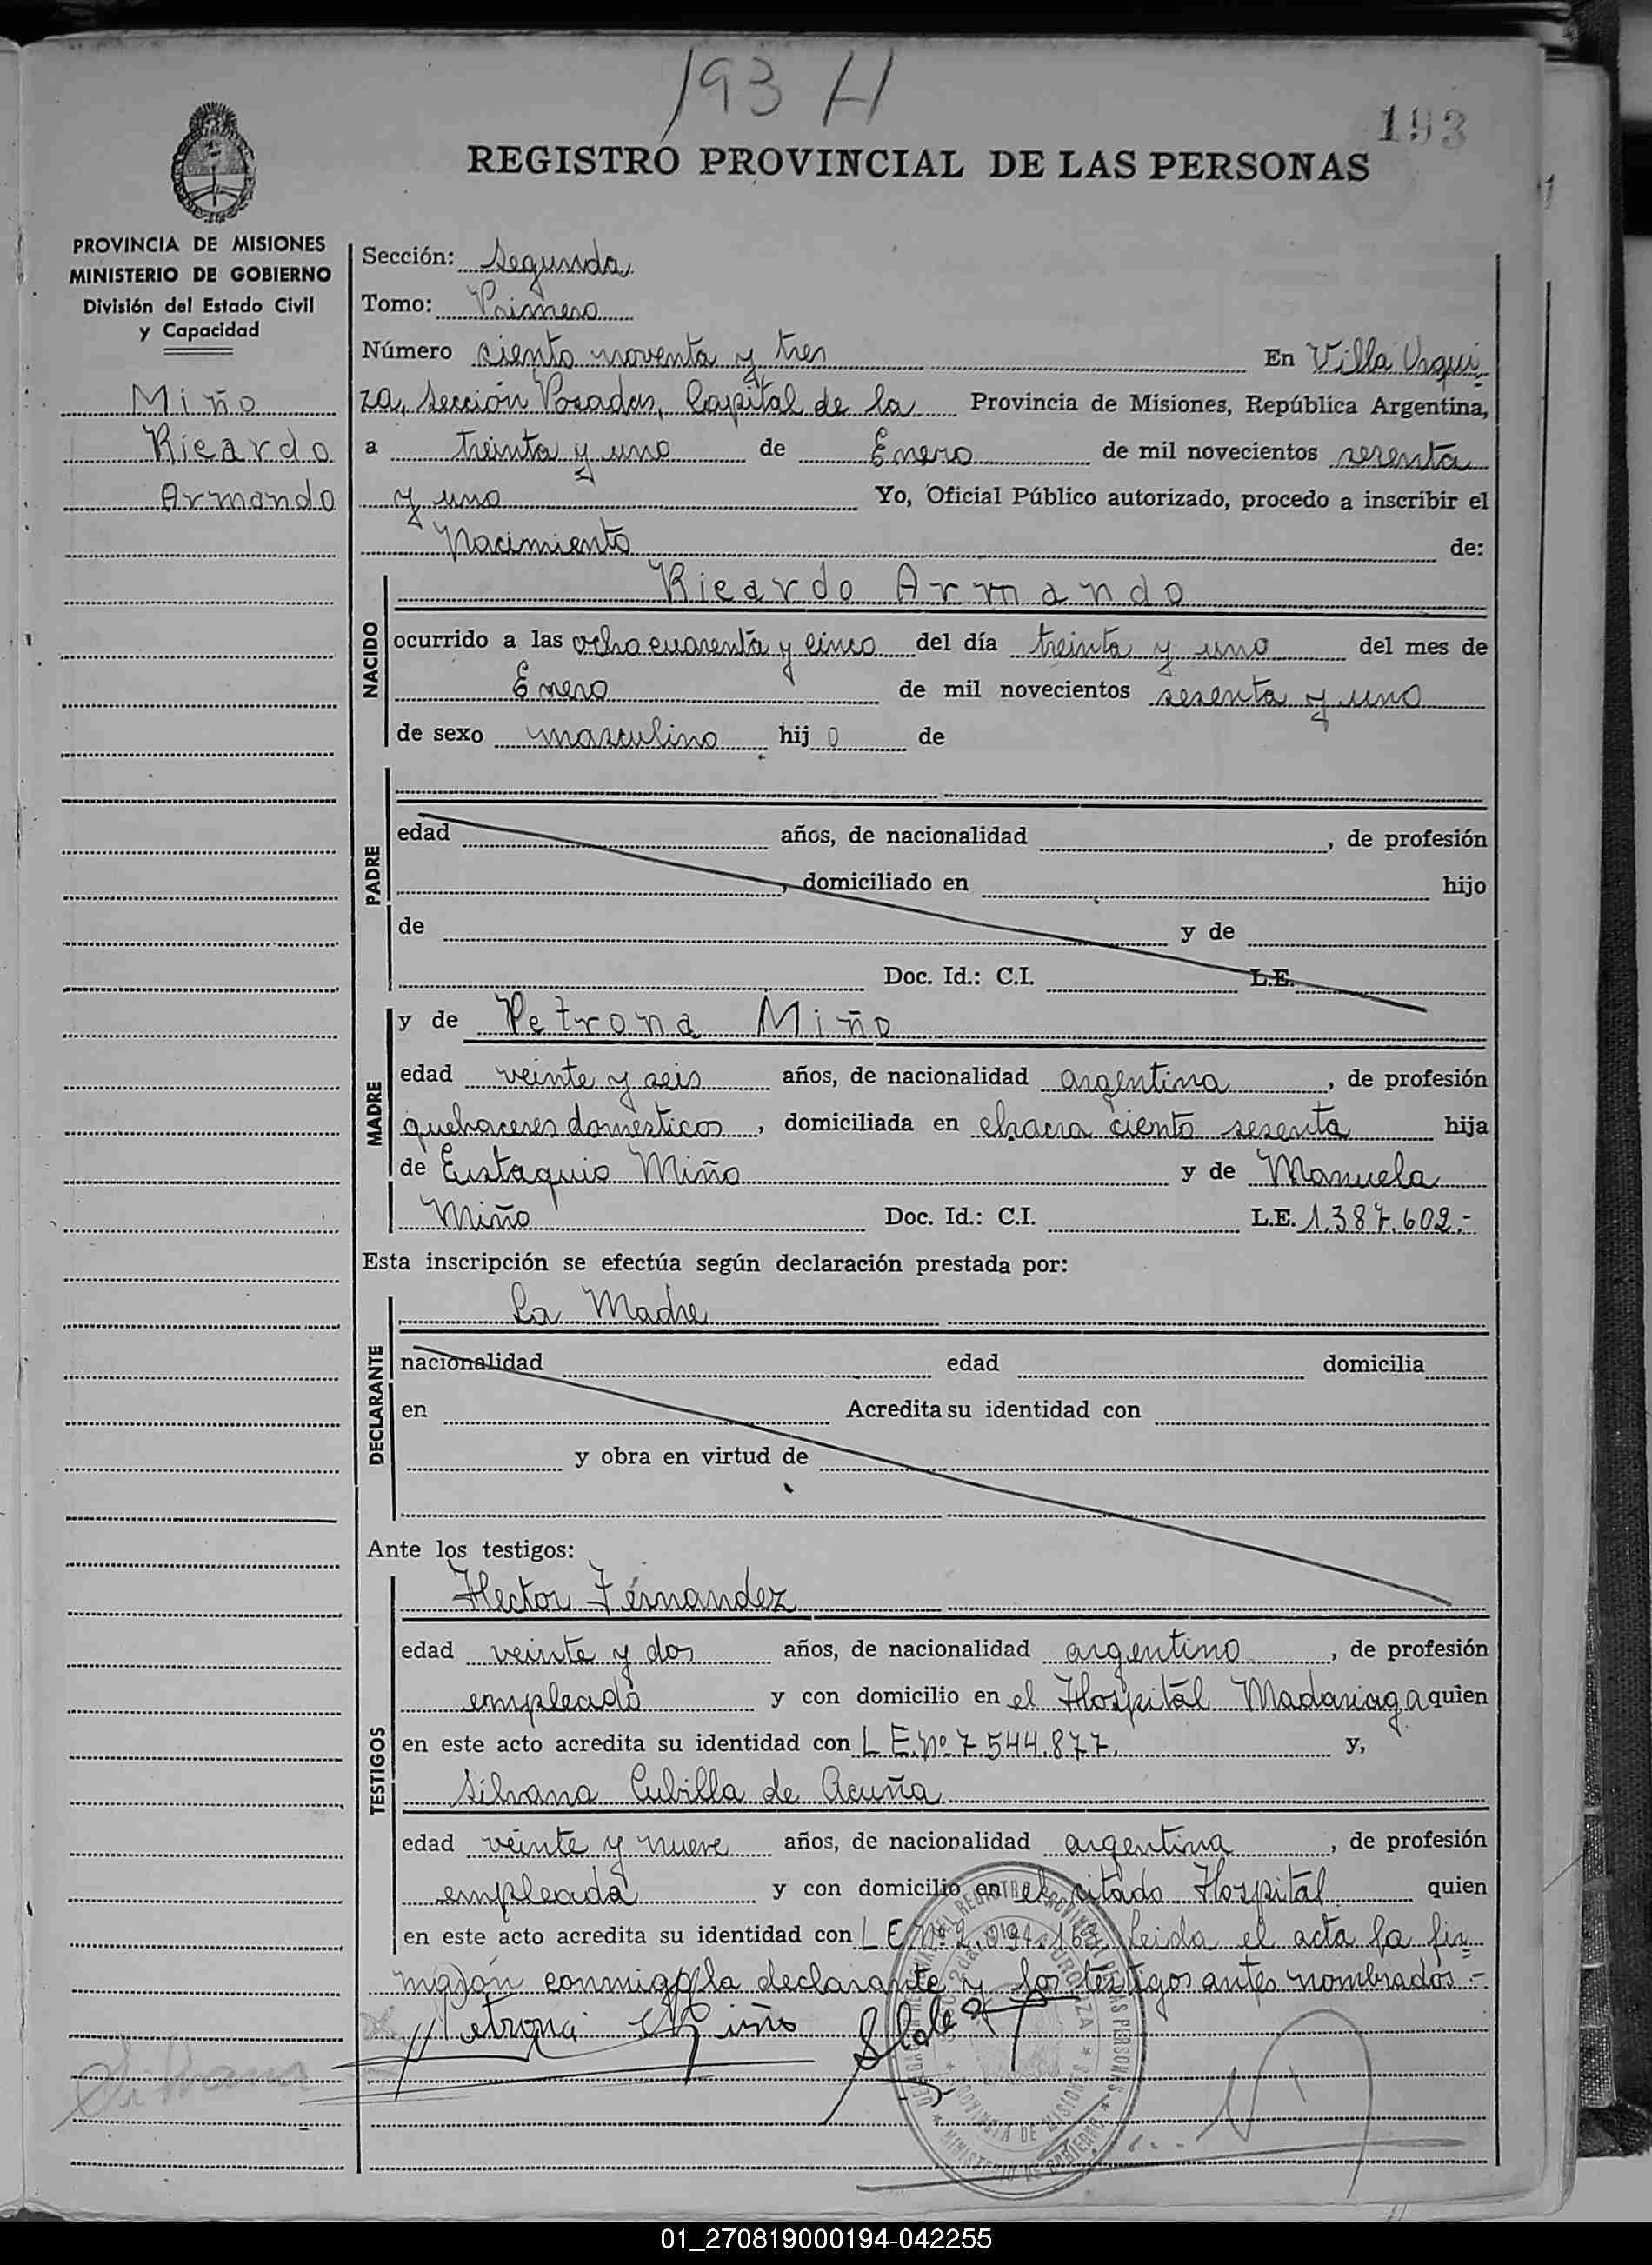 193 H
193
REGISTRO PROVINCIAL DE LAS PERSONAS
PROVINCIA DE MISIONES
MINISTERIO DE GOBIERNO
División del Estado Civil
y Capacidad
Miño
Ricardo
Armando
Sección: Segunda
Tomo: Primero
Número ciento noventa y tres En Villa Urqui
za, Sección Posadas, Capital de la Provincia de Misiones, República Argentina,
a treinta y uno de Enero de mil novecientos sesenta
y uno Yo, Oficial Público autorizado, procedo a inscribir el
Nacimiento de:
Ricardo Armando
NACIDO
ocurrido a las ocho cuarenta y cinco del día treinta y uno del mes de
Enero de mil novecientos sesenta y uno
de sexo masculino hijo de
PADRE
edad años, de nacionalidad , de profesión
, domiciliado en hijo
de y de
Doc. Id.: C.I. L.E.
MADRE
y de Petrona Miño
edad veinte y seis años, de nacionalidad argentina, de profesión
quehaceres domésticos, domiciliada en chacra ciento sesenta hija
de Eustaquio Miño y de Manuela
Miño Doc. Id.: C.I. L.E. 1.387.602.-
Esta inscripción se efectúa según declaración prestada por:
La Madre
DECLARANTE
nacionalidad edad domicilia
en Acredita su identidad con
y obra en virtud de
Ante los testigos:
TESTIGOS
Hector Fernandez
edad veinte y dos años, de nacionalidad argentino, de profesión
empleado y con domicilio en el Hospital Madariaga quien
en este acto acredita su identidad con L E.Nº 7.544.877. y,
Silvana Cubilla de Acuña
edad veinte y nueve años, de nacionalidad argentina, de profesión
empleada y con domicilio en el citado Hospital quien
en este acto acredita su identidad con L E Nº 2. Leida el acta la fir
maron conmigo la declarante y los testigos antes nombrados.-
Petrona Miño
Silvana
PROVINCIA DE MISIONES
MINISTERIO DE GOBIERNO
01_270819000194-042255